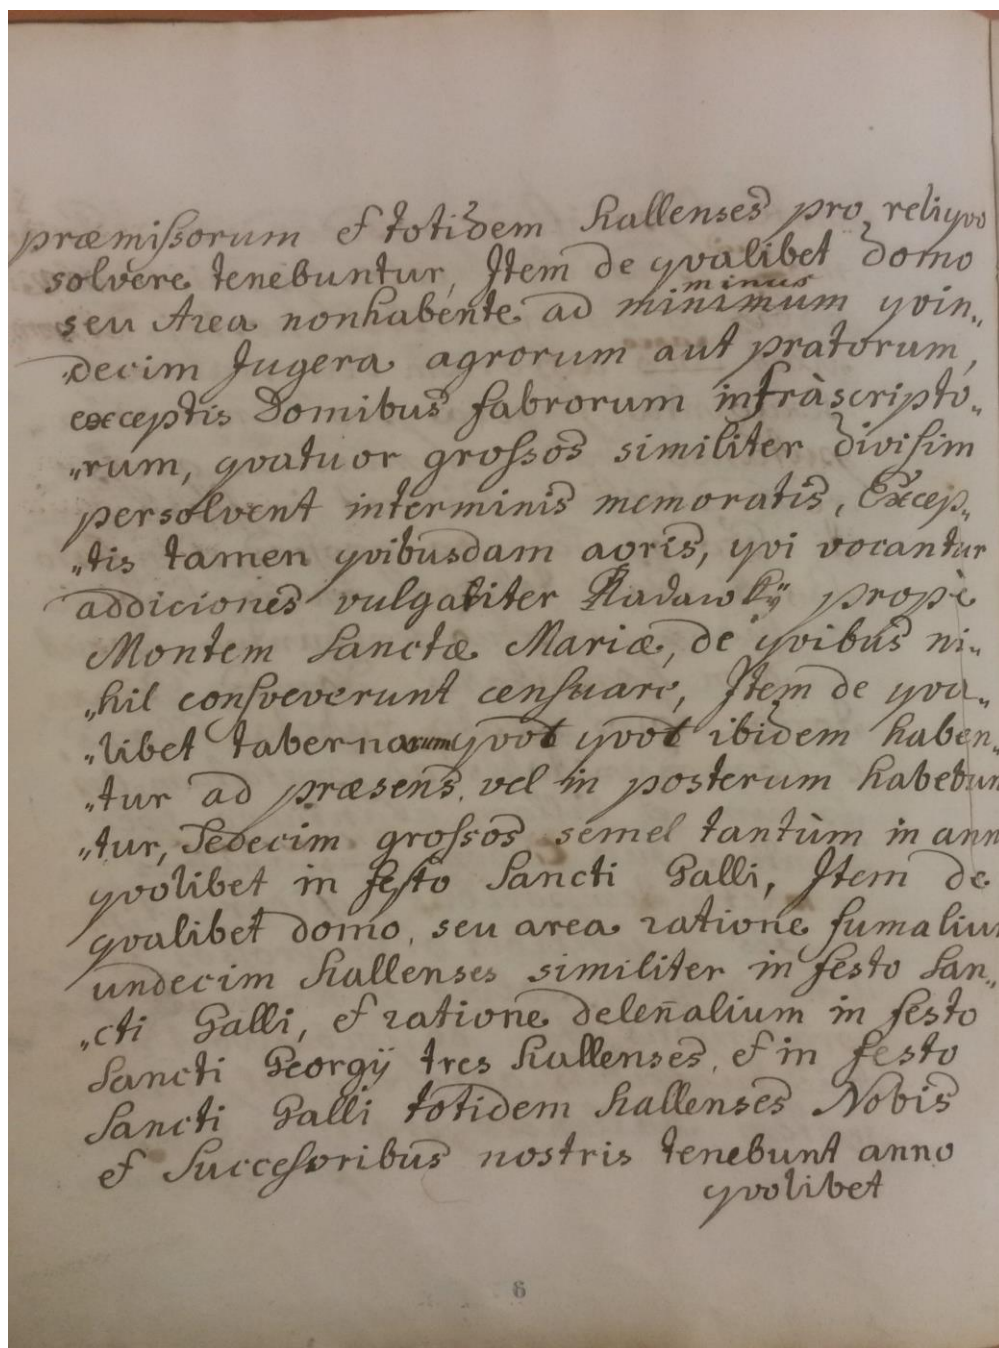 præmissorum et totidem hallenses pro reliqvo
solvere tenebuntur, Item de qvalibet domo
minus
seu Area nonhabente ad minimum qvin„
decim Jugera agrorum aut pratorum,
exceptis Domibus fabrorum infràscripto„
„rum, qvatuor grossos similiter divisim
persolvent interminis memoratis, Excep„
„tis tamen qvibusdam agris, qvi vocantur
addiciones vulgaliter Radawkÿ propè
Montem Sanctæ Mariæ, de qvibus ni„
„hil consveverunt censuare, Item de qva„
„libet tabernarum qvot qvot ibidem haben„
„tur ad præsens, vel in posterum habebun
„tur, Sedecim grossos semel tantùm in ann
qvolibet in festo Sancti Galli, Item de
qvalibet domo, seu area ratione fumaliu
undecim hallenses similiter in festo San„
„cti Galli, et ratione deleñalium in festo
Sancti Georgÿ tres hallenses, et in festo
Sancti Galli totidem hallenses Nobis
et Successoribus nostris tenebunt anno
qvolibet
6